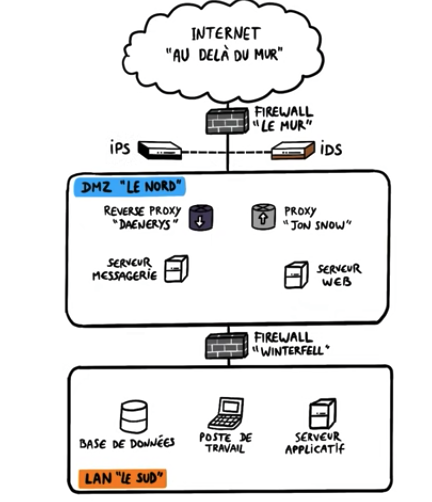 INTERNET
"AU DELÀ DU MUR"
FIREWALL
"LE MUR"
iPS
iDS
DMZ "LE NORD"
REVERSE PROXY
"DAENERYS"
PROXY
"JON SNOW"
SERVEUR
MESSAGERIE
SERVEUR
WEB
FIREWALL
"WINTERFELL"
BASE DE DONNÉES
POSTE DE
TRAVAIL
SERVEUR
APPLICATIF
LAN "LE SUD"